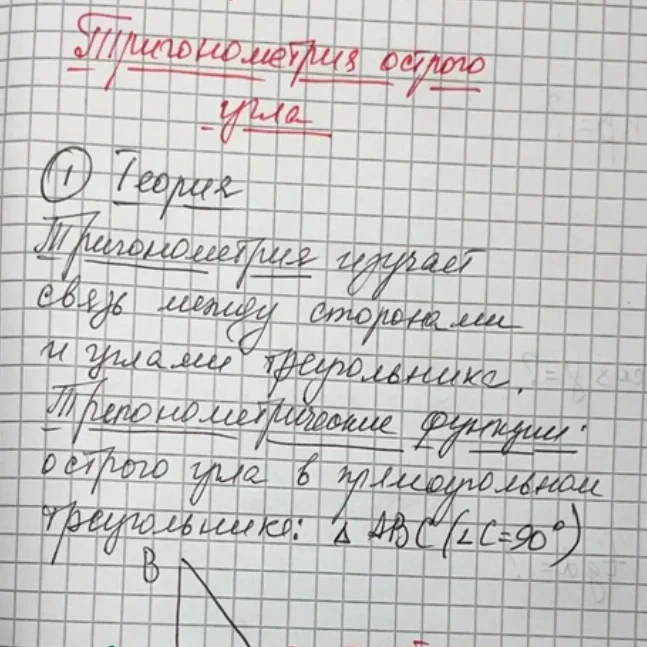 Тригонометрия острого
угла
① Теория
Тригонометрия изучает
связь между сторонами
и углами треугольника.
Тригонометрические функции:
острого угла в прямоугольном
треугольнике: △ ABC (∠C=90°)
B